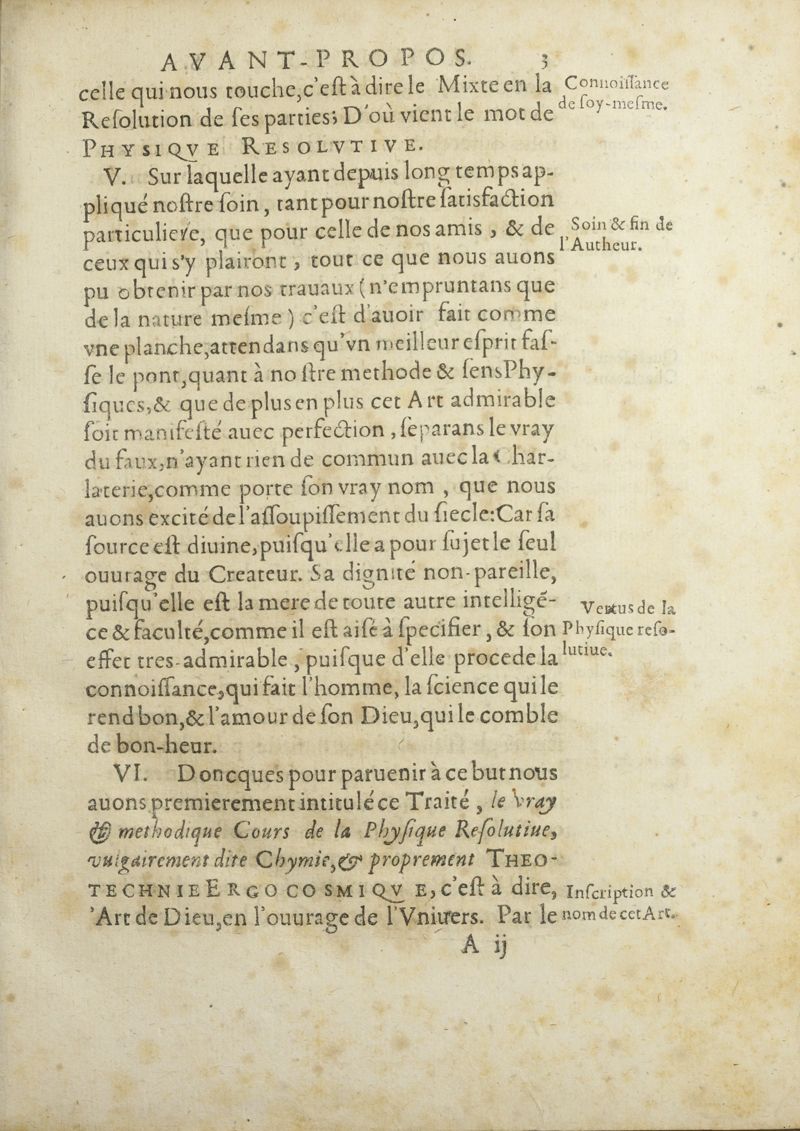 AVANT-PROPOS. 3
celle qui nous touche,c'eſt à dire le Mixte en la
Connoiſſance
de ſoy-meſme.
Reſolution de ſes parties; D'où vient le mot de
PHYSIQVE RESOLVTIVE.
V. Sur laquelle ayant depuis long temps ap-
pliqué noſtre ſoin, tant pour noſtre ſatisfaction
particuliere, que pour celle de nos amis , & de
Soin & fin de
l'Autheur.
ceux qui s'y plairont , tout ce que nous auons
pu obtenir par nos trauaux ( n'empruntans que
de la nature meſme ) c'eſt d'auoir fait comme
vne planche,attendans qu'vn meilleur eſprit faſ-
ſe le pont,quant à noſtre methode & ſens Phy-
ſiques,& que de plus en plus cet Art admirable
ſoit manifeſté auec perfection , ſeparans le vray
du faux,n'ayant rien de commun auec la Char-
laterie,comme porte ſon vray nom , que nous
auons excité de l'aſſoupiſſement du ſiecle:Car ſa
ſource eſt diuine,puiſqu'elle a pour ſujet le ſeul
ouurage du Createur. Sa dignité non-pareille,
puiſqu'elle eſt la mere de toute autre intelligé-
Vertus de la
Phyſique reſo-
lutiue.
ce & faculté,comme il eſt aiſé à ſpecifier , & ſon
effet tres-admirable , puiſque d'elle procede la
connoiſſance,qui fait l'homme, la ſcience qui le
rend bon,& l'amour de ſon Dieu,qui le comble
de bon-heur.
VI. Doncques pour paruenir à ce but nous
auons premierement intitulé ce Traité , le Vray
& methodique Cours de la Phyſique Reſolutiue,
vulgairement dite Chymie,& proprement THEO-
TECHNIE ERGOCOSMIQVE, c'eſt à dire,
Inſcription &
nom de cet Art.
'Art de Dieu,en l'ouurage de l'Vniuers. Par le
A ij